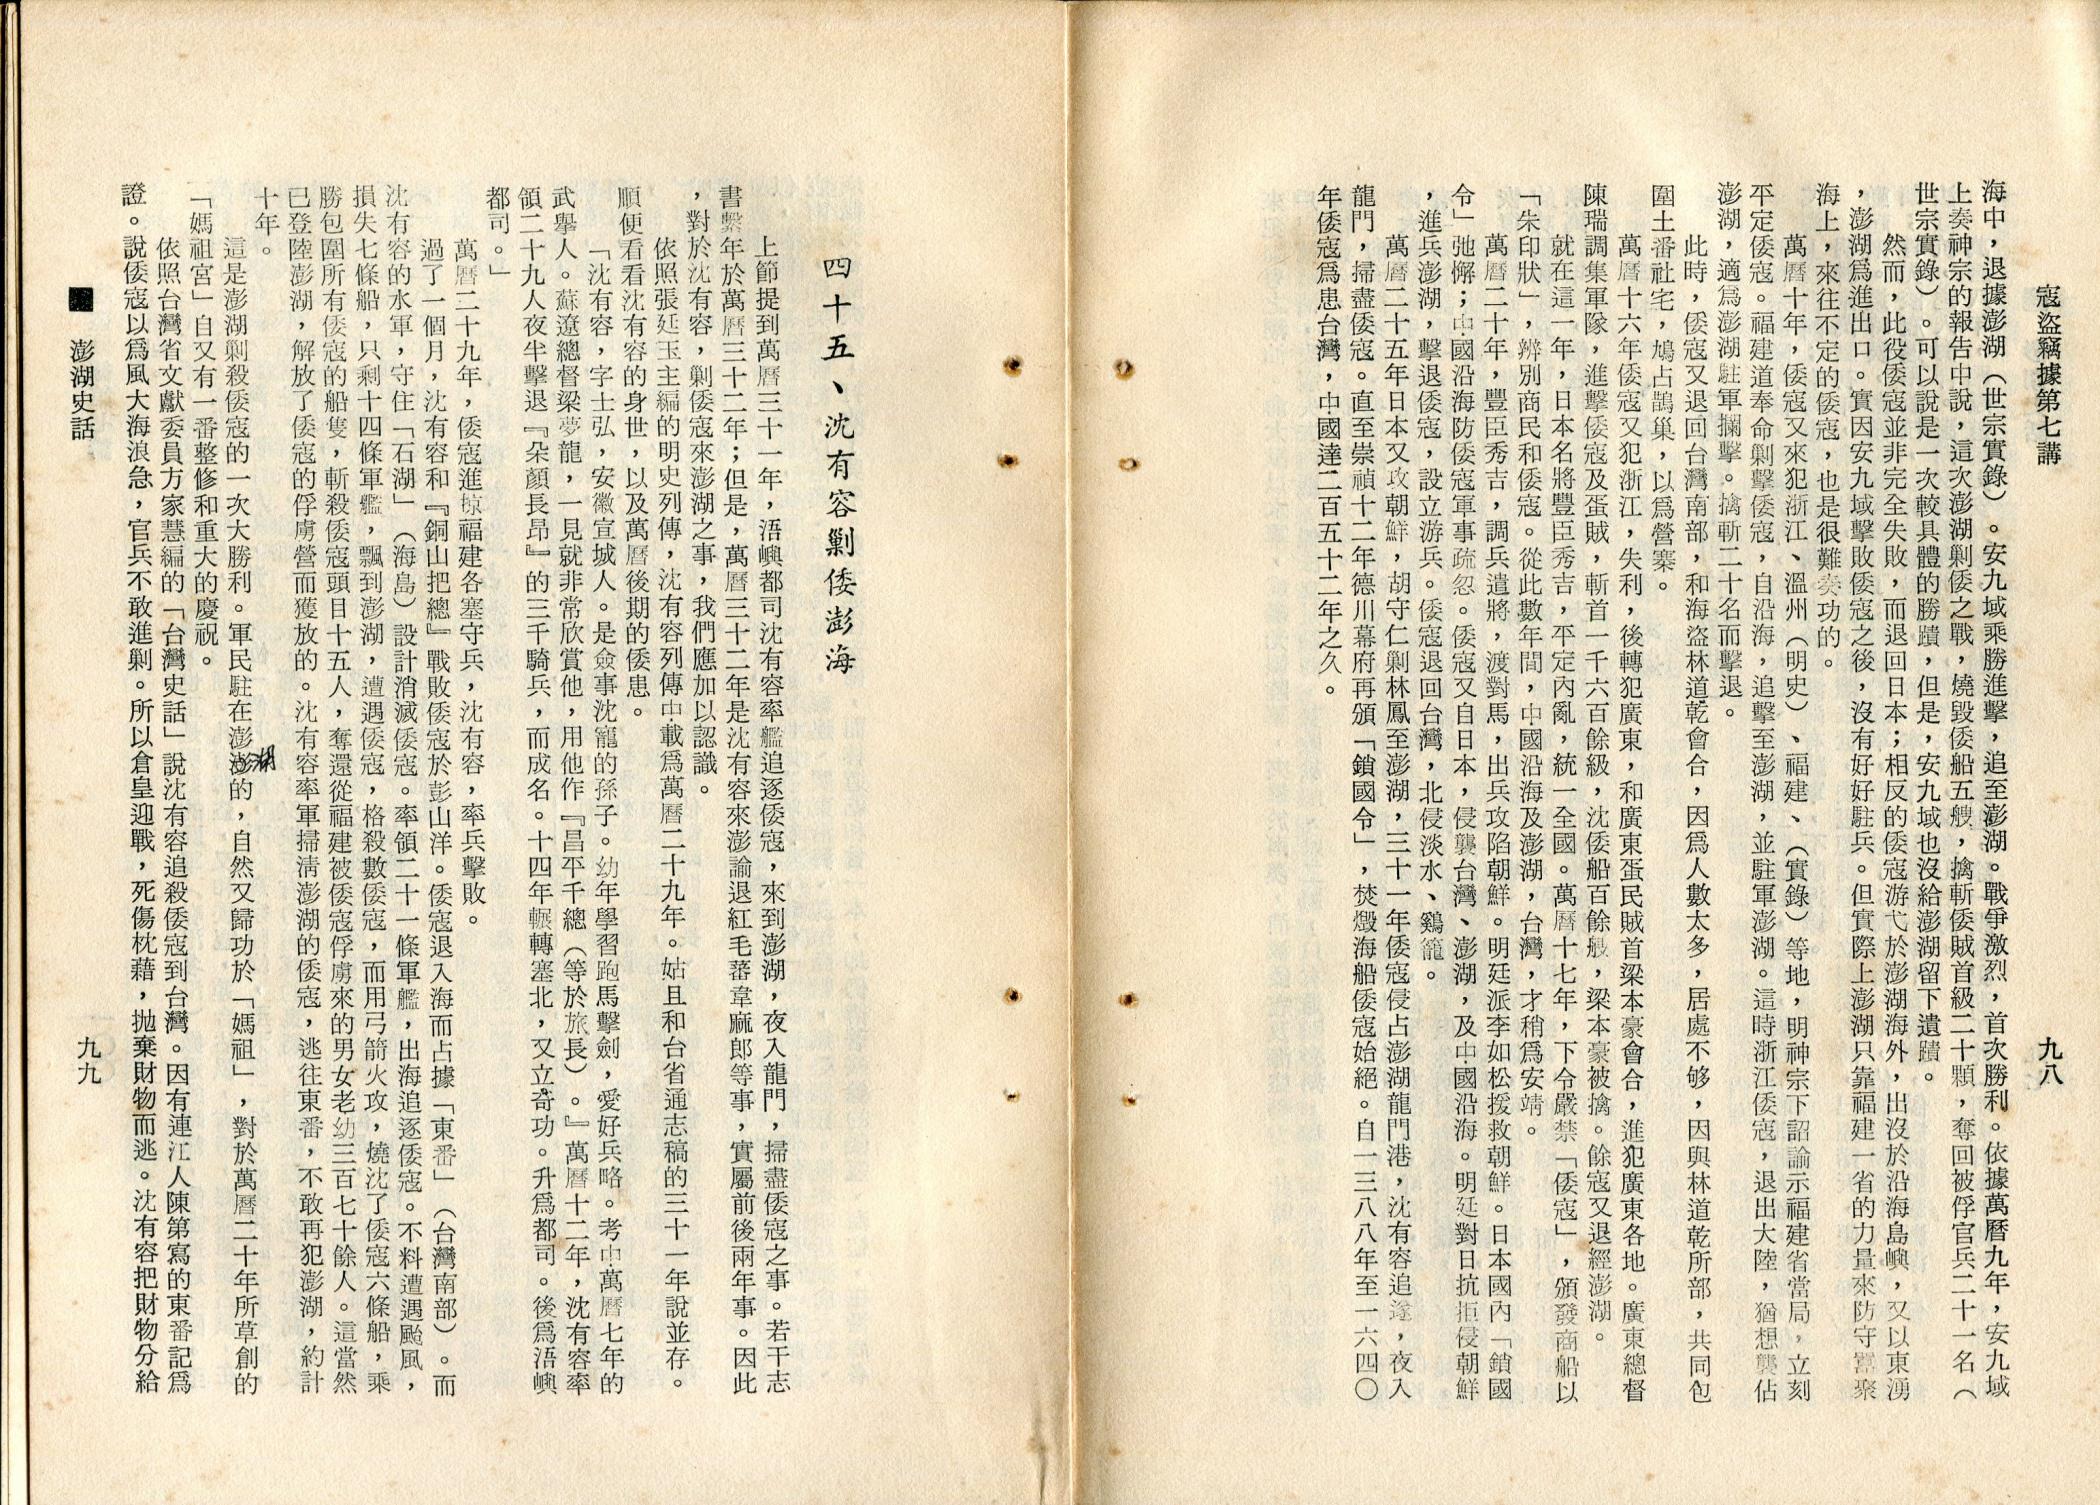 寇盜竊據第七講
九八
海中，退據澎湖（世宗實錄）。安九域乘勝進擊，追至澎湖。戰爭激烈，首次勝利。依據萬曆九年，安九域
上奏神宗的報告中說，這次澎湖剿倭之戰，燒毀倭船五艘，擒斬倭賊首級二十顆，奪回被俘官兵二十一名（
世宗實錄）。可以說是一次較具體的勝蹟，但是，安九域也沒給澎湖留下遺蹟。
然而，此役倭寇並非完全失敗，而退回日本；相反的倭寇游弋於澎湖海外，出沒於沿海島嶼，又以東湧
，澎湖爲進出口。實因安九域擊敗倭寇之後，沒有好好駐兵。但實際上澎湖只靠福建一省的力量來防守嘉聚
海上，來往不定的倭寇，也是很難奏功的。
萬曆十年，倭寇又來犯浙江、溫州（明史）、福建、（實錄）等地，明神宗下詔諭示福建省當局，立刻
平定倭寇。福建道奉命剿擊倭寇，自沿海，追擊至澎湖，並駐軍澎湖。這時浙江倭寇，退出大陸，猶想襲佔
澎湖，適爲澎湖駐軍攔擊。擒斬二十名而擊退。
此時，倭寇又退回台灣南部，和海盜林道乾會合，因爲人數太多，居處不够，因與林道乾所部，共同包
圍土番社宅，鳩占鵲巢，以爲營寨。
萬曆十六年倭寇又犯浙江，失利，後轉犯廣東，和廣東蛋民賊首梁本豪會合，進犯廣東各地。廣東總督
陳瑞調集軍隊，進擊倭寇及蛋賊，斬首一千六百餘級，沈倭船百餘艘，梁本豪被擒。餘寇又退經澎湖。
就在這一年，日本名將豐臣秀吉，平定內亂，統一全國。萬曆十七年，下令嚴禁「倭寇」，頒發商船以
「朱印狀」，辨別商民和倭寇。從此數年間，中國沿海及澎湖，台灣，才稍爲安靖。
萬曆二十年，豐臣秀吉，調兵遣將，渡對馬，出兵攻陷朝鮮。明廷派李如松援救朝鮮。日本國內「鎖國
令」弛懈；中國沿海防倭寇軍事疏忽。倭寇又自日本，侵襲台灣、澎湖，及中國沿海。明廷對日抗拒侵朝鮮
，進兵澎湖，擊退倭寇，設立游兵。倭寇退回台灣，北侵淡水、鷄籠。
萬曆二十五年日本又攻朝鮮，胡守仁剿林鳳至澎湖，三十一年倭寇侵占澎湖龍門港，沈有容追逐，夜入
龍門，掃盡倭寇。直至崇禎十二年德川幕府再頒「鎖國令」，焚燬海船倭寇始絕。自一三八八年至一六四〇
年倭寇爲患台灣，中國達二百五十二年之久。
四十五、沈有容剿倭澎海
上節提到萬曆三十一年，浯嶼都司沈有容率艦追逐倭寇，來到澎湖，夜入龍門，掃盡倭寇之事。若干志
書繫年於萬曆三十二年；但是，萬曆三十二年是沈有容來澎諭退紅毛蕃韋麻郎等事，實屬前後兩年事。因此
，對於沈有容，剿倭寇來澎湖之事，我們應加以認識。
依照張廷玉主編的明史列傳，沈有容列傳中載爲萬曆二十九年。姑且和台省通志稿的三十一年說並存。
順便看看沈有容的身世，以及萬曆後期的倭患。
「沈有容，字士弘，安徽宣城人。是僉事沈寵的孫子。幼年學習跑馬擊劍，愛好兵略。考中萬曆七年的
武擧人。蘇遼總督梁夢龍，一見就非常欣賞他，用他作『昌平千總（等於旅長）。』萬曆十二年，沈有容率
領二十九人夜半擊退『朵顏長昂』的三千騎兵，而成名。十四年輾轉塞北，又立奇功。升爲都司。後爲浯嶼
都司。」
萬曆二十九年，倭寇進掠福建各塞守兵，沈有容，率兵擊敗。
過了一個月，沈有容和『銅山把總』戰敗倭寇於彭山洋。倭寇退入海而占據「東番」（台灣南部）。而
沈有容的水軍，守住「石湖」（海島）設計消滅倭寇。率領二十一條軍艦，出海追逐倭寇。不料遭遇颱風，
損失七條船，只剩十四條軍艦，飄到澎湖，遭遇倭寇，格殺數倭寇，而用弓箭火攻，燒沈了倭寇六條船，乘
勝包圍所有倭寇的船隻，斬殺倭寇頭目十五人，奪還從福建被倭寇俘虜來的男女老幼三百七十餘人。這當然
已登陸澎湖，解放了倭寇的俘虜營而獲放的。沈有容率軍掃淸澎湖的倭寇，逃往東番，不敢再犯澎湖，約計
十年。
這是澎湖剿殺倭寇的一次大勝利。軍民駐在澎湖的，自然又歸功於「媽祖」，對於萬曆二十年所草創的
「媽祖宮」自又有一番整修和重大的慶祝。
依照台灣省文獻委員方家慧編的「台灣史話」說沈有容追殺倭寇到台灣。因有連江人陳第寫的東番記爲
證。說倭寇以爲風大海浪急，官兵不敢進剿。所以倉皇迎戰，死傷枕藉，抛棄財物而逃。沈有容把財物分給
■ 澎湖史話
九九